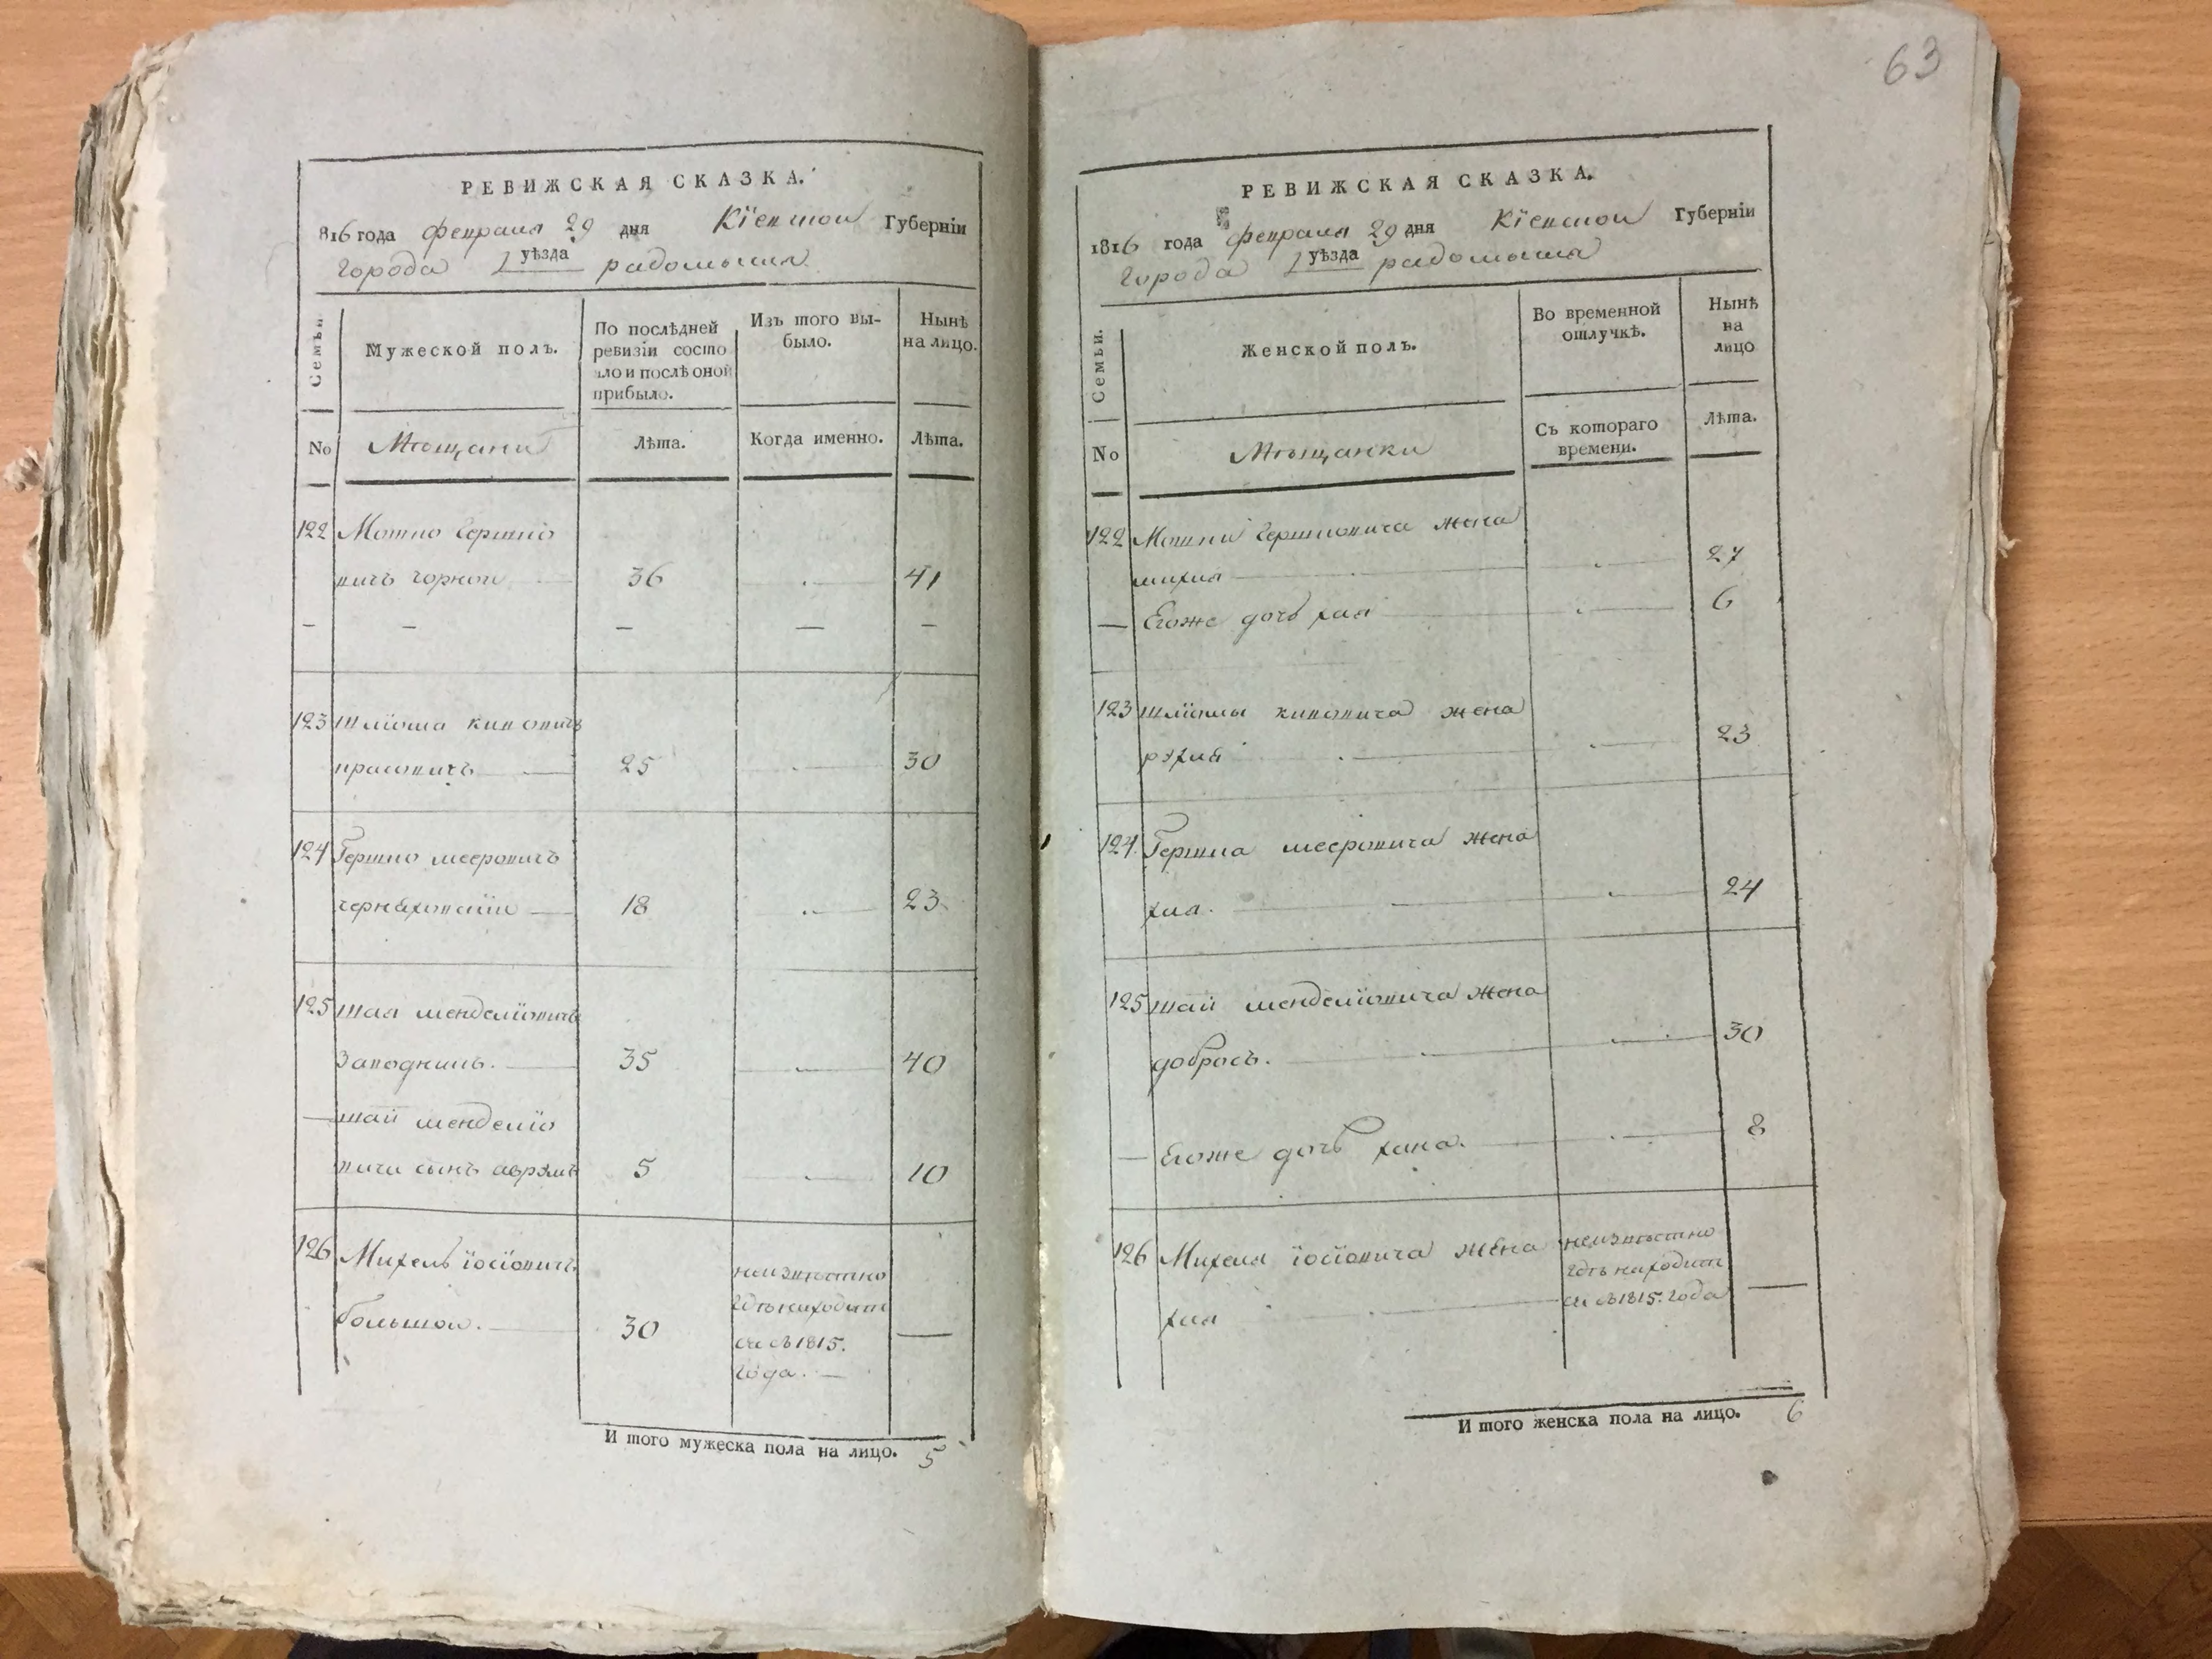 63
РЕВИЖСКАЯ СКАЗКА.
1816 года февраля 29 дня Кіевской Губерніи
города уѣзда радомысля
Семьи
Мужеской полъ.
По послѣдней ревизіи состояло и послѣ оной прибыло.
Изъ того выбыло.
Нынѣ на лицо.
No
Мѣщани
Лѣта.
Когда именно.
Лѣта.
122 Мошко Гершко
вичъ чорной 36 41
123 шліома кивовичъ
25 30
124 Гершко мееровичъ
черняховскій 18 23
125 шая менделіовичъ
Заводникъ. 35 40
шаи менделіо
вича сынъ аврумъ 5 10
126 Михель іосіовичъ
большой. 30
неизвѣстно
гдѣ находит
ся съ 1815.
года.
И того мужеска пола на лицо. 5
РЕВИЖСКАЯ СКАЗКА.
1816 года февраля 29 дня Кіевской Губерніи
города уѣзда радомысля
Семьи.
Женской полъ.
Во временной отлучкѣ.
Нынѣ на лицо
No
Мѣщанки
Съ котораго времени.
Лѣта.
122 Мошки Гершковича жена
27
Егоже дочь хая 6
123 шліомы кивовича жена
рухля 23
124 Гершка мееровича жена
хая. 24
125 шаи менделіовича жена
добрось. 30
Егоже дочь хана. 8
126 Михеля іосіовича жена
хая
неизвѣстно
гдѣ находит
ся съ 1815. года
И того женска пола на лицо. 6